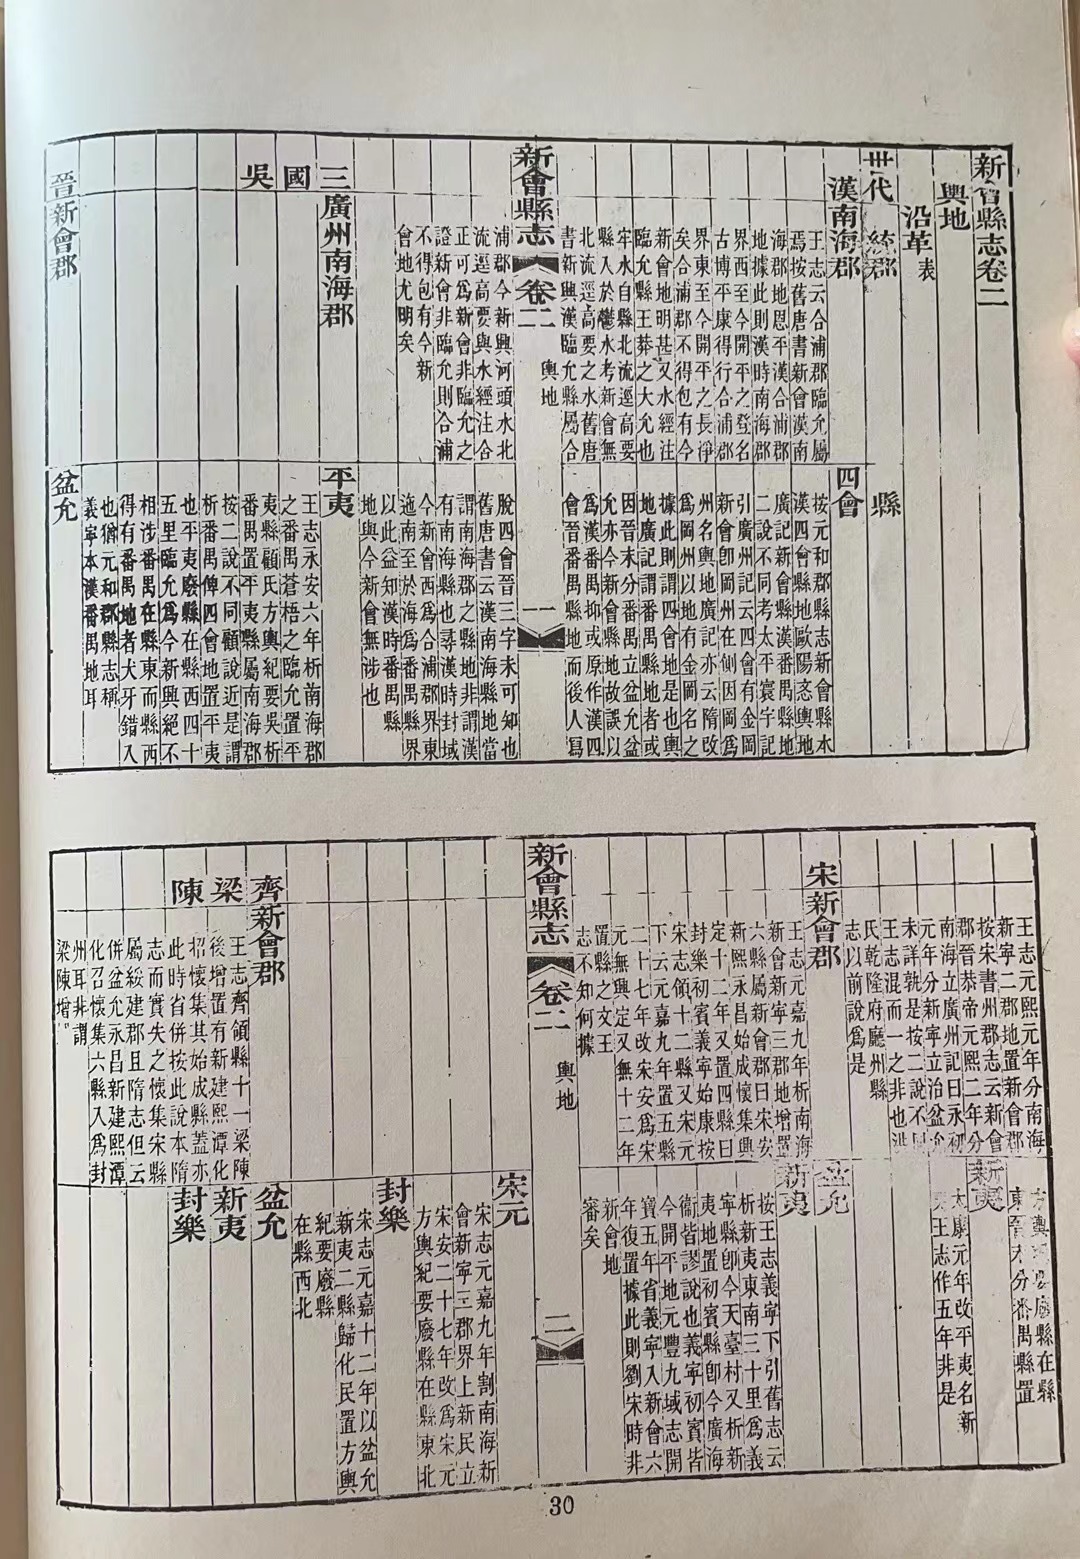 新會縣志卷二
輿地
沿革表
世代
統郡
縣
漢南海郡
王志云合浦郡臨允屬
焉按舊唐書新會漢南
海郡地恩平漢合浦郡
地據此則漢時南海郡
界西至今開平之登名
古博平康得行合浦郡
界東至今開平之長淨
矣合浦郡不得包有今
新會地明甚又水經注
臨允縣王莽之大允也
牢水自縣北流逕高要
縣入於鬱水考新會無
北流逕高要之水舊唐
書新興漢臨允縣屬合
四會
按元和郡縣志新會縣本
漢四會縣地歐陽忞輿地
廣記新會縣漢番禺縣地
二說不同考太平寰宇記
引廣州記云四會有金岡
新會卽岡州在側因岡爲
州名輿地廣記亦云隋改
爲岡州以地有金岡名之
據此則謂四會地是也輿
地廣記謂番禺縣地者或
因晉末分番禺立盆允盆
允亦今新會縣地故誤以
爲漢番禺抑或原作漢四
會晉番禺縣地而後人寫
新會縣志
卷二
輿地
一
浦郡今新興河頭水北
流逕高要與水經注合
正可爲新會非臨允之
證新會非臨允則合浦
不得包有今新
會地尤明矣
脫四會晉三字未可知也
舊唐書云漢南海縣地當
謂南海郡之縣地非謂漢
有南海縣也尋漢時封域
今新會西爲合浦郡界東
迤南至於海爲番禺縣界
以此益知漢時番禺縣
地與今新會無涉也
三國吳
廣州南海郡
平夷
王志永安六年析南海郡
之番禺蒼梧之臨允置平
夷縣顧氏方輿紀要吳析
番禺置平夷縣屬南海郡
按二說不同顧說近是謂
析番禺俾四會地置平夷
也平夷廢縣在縣西四十
五里臨允爲今新興絕不
相涉番禺在縣東而縣西
得有番禺地者犬牙錯入
也猶元和郡縣志稱
義寧本漢番禺地耳
晉新會郡
盆允
王志元熙元年分南海
新寧二郡地置新會郡
按宋書州郡志云新會
郡晉恭帝元熙二年分
南海立廣州記曰永初
元年分新寧立治盆允
未詳孰是按二說不同
王志混而一之非也洪
氏乾隆府廳州縣
志以前說爲是
廢縣在縣
東晉末分番禺縣置
新夷
太康元年改平夷名新
夷王志作五年非是
宋新會郡
王志元嘉九年析南海
新會新寧三郡地增置
六縣屬新會郡曰宋安
新熙永昌始成懷集興
定十二年又置四縣曰
封樂初賓義寧始康按
宋志領十二縣又宋元
下云元嘉九年置五縣
二十七年改宋安爲宋
元無興定又無十二年
置縣之文王
志不知何據
盆允
新夷
按王志義寧下引舊志云
析新夷東南三十里爲義
寧縣卽今天臺村又析新
夷地置初賓縣卽今廣海
衞皆謬說也義寧初賓皆
今開平地元豐九域志開
寶五年省義寧入新會六
年復置據此則劉宋時非
新會地
審矣
新會縣志
卷二
輿地
二
宋元
宋志元嘉九年割南海新
會新寧三郡界上新民立
宋安二十七年改爲宋元
方輿紀要廢縣在縣東北
封樂
宋志元嘉十二年以盆允
新夷二縣歸化民置方輿
紀要廢縣
在縣西北
齊新會郡
盆允
梁
新夷
陳
封樂
王志齊領縣十一梁陳
後增置有新建熙潭化
招懷集其始成縣蓋亦
此時省併按此說本隋
志而實失之懷集宋縣
屬綏建郡且隋志但云
併盆允永昌新建熙潭
化召懷集六縣入爲封
州耳非謂
梁陳增
30